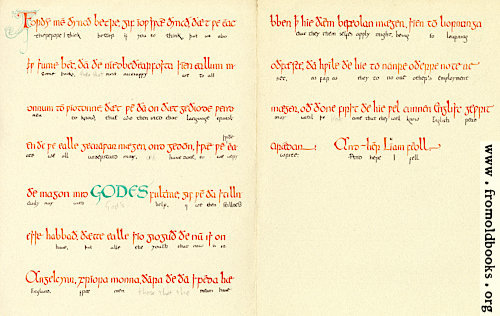 Forðy me ðyncð betre, gif iow swæ ðyncð, ðæt we eac
therefore I think better if you so think, that we also
sume bec, ða ðe niedbeðearfosta sien eallum m
some books, that most necessary to all
onnum to wiotonne, ðæt we ða on ðæt geðiode wen
men to know, that we then into that language
en ðe we ealle gecnawan mægen, ond gedon, swæ we
swiðe
as we all understand may, and have done, so we very
ðe magon mid GODES fultume, gif we ða stiln
easily may with God's help, if we then stillness
esse habbað, ðætte ealle sio gioguð ðe nu is on
have, that all the youth that now is in
Angelcynn, friora monna, ðara ðe ða speda hæ
England, free men those that the means have
bben ðæt hie ðæm befeolan mægen, sien to liornunga
that they them selves apply might, being to learning
oðfæste, ða hwile ðe hie to nanre oðerre note ne
set, as long as they to no other employment
mægen, oð ðone first ðe hie wel cunnen Englisc gewrit
may until the time that they well know English
arædan Ond hēr Liam feoll
And here I fell
www.fromoldbooks.org